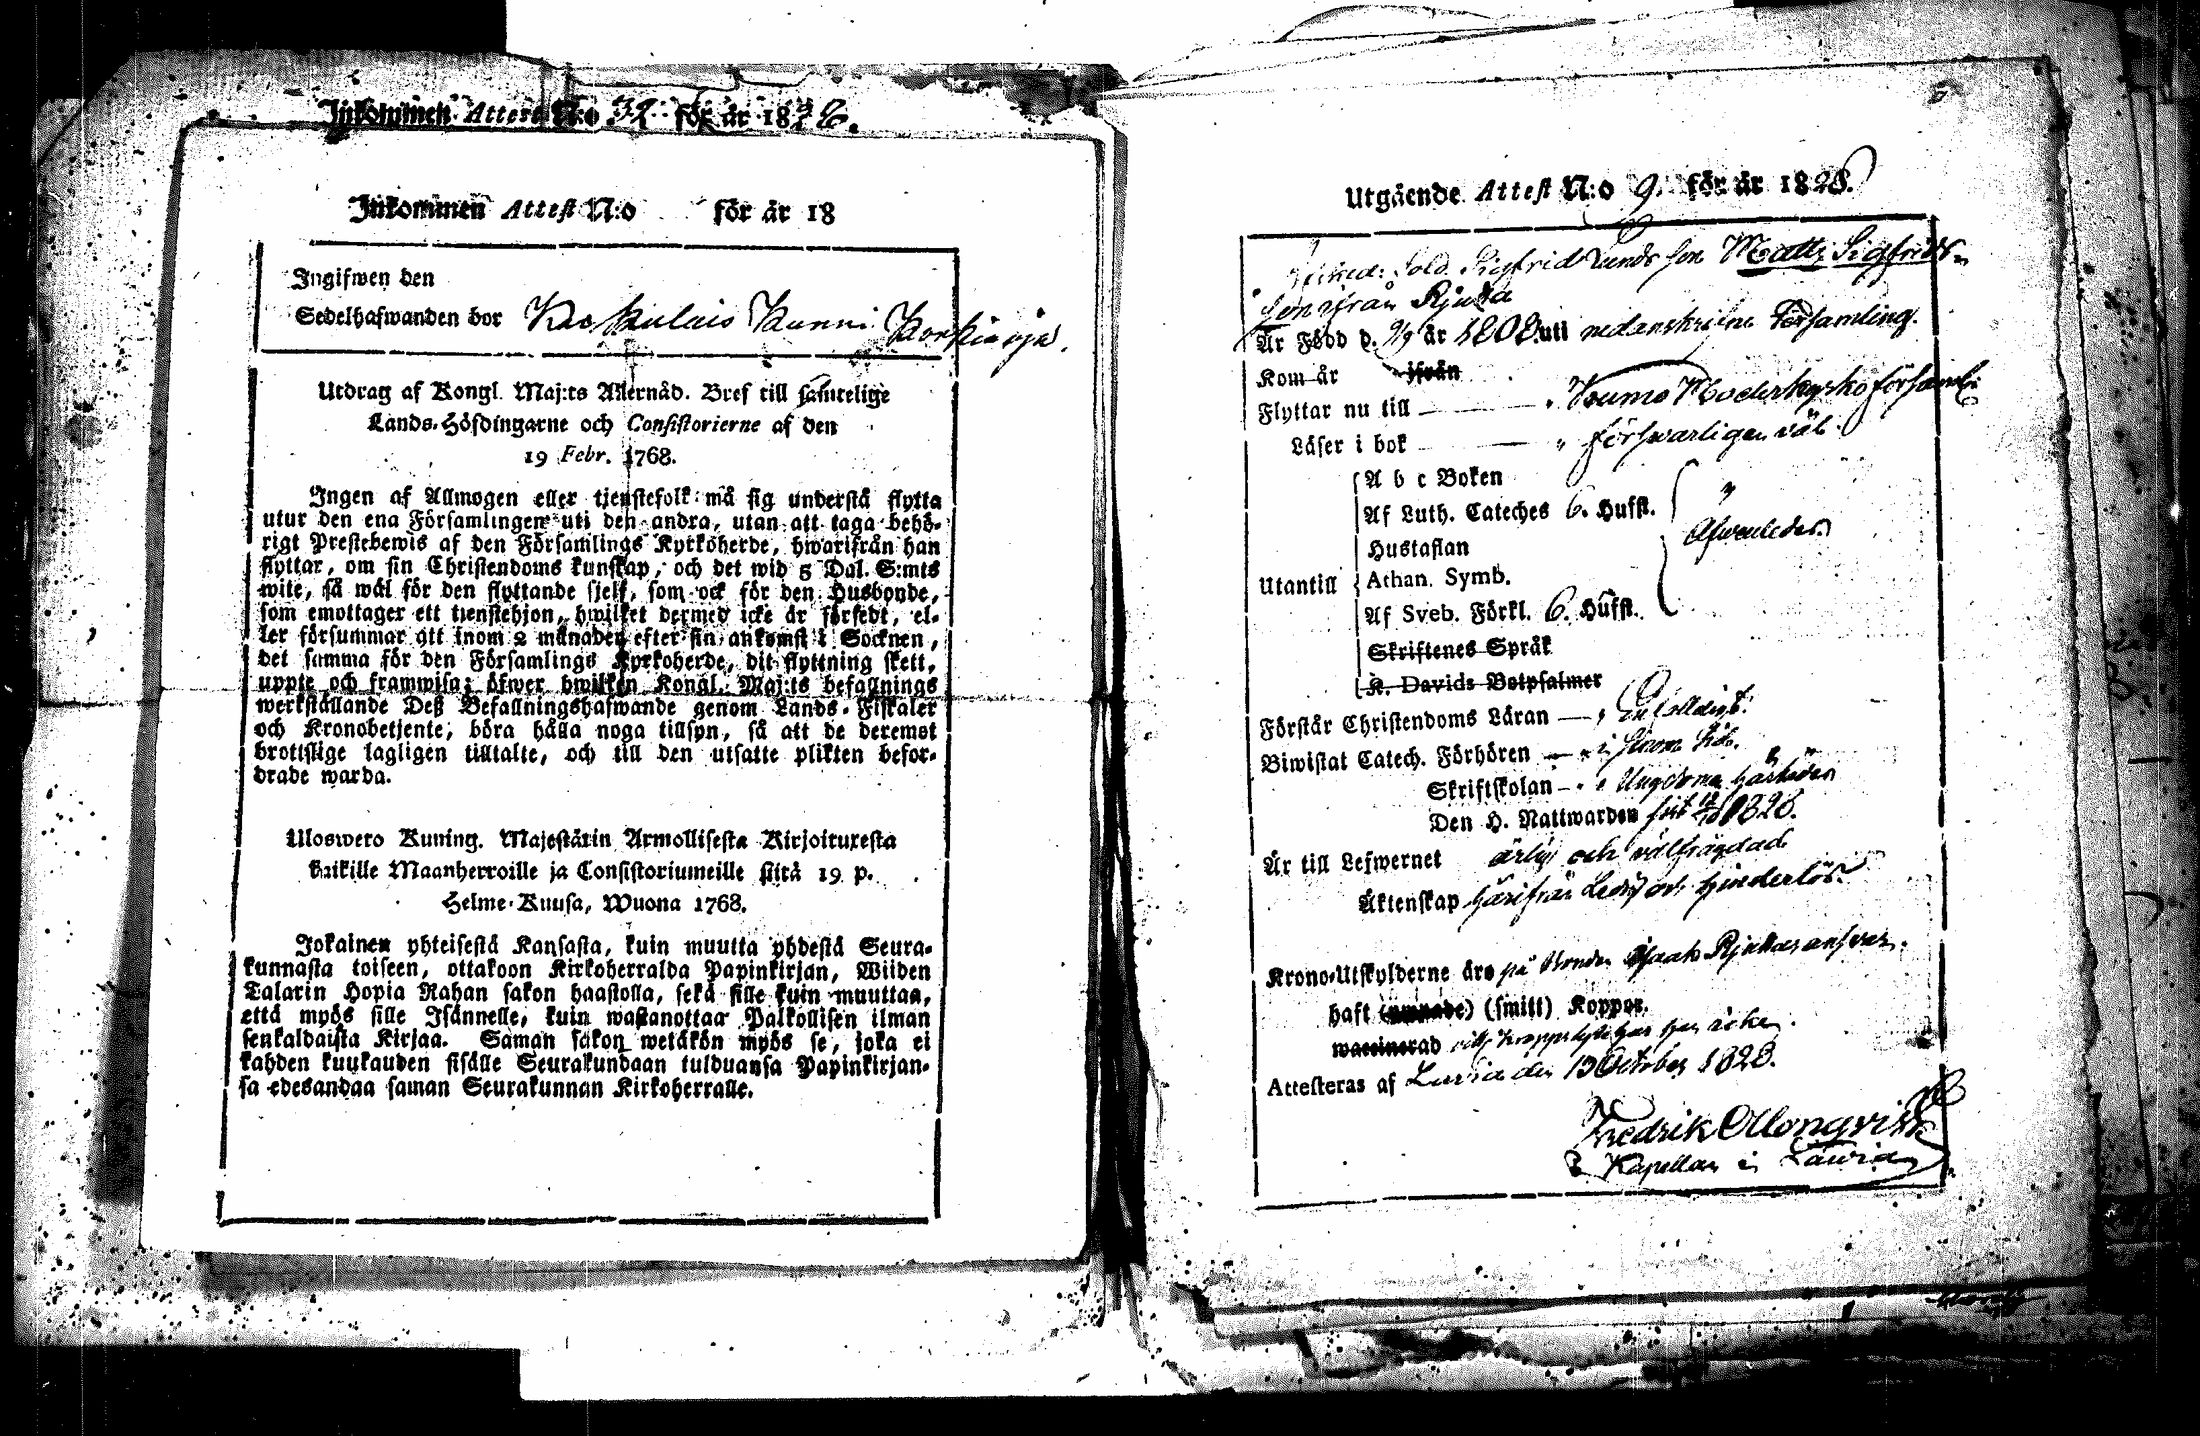 Inkommen Attest N:o 32 för år 18
Inkommen Attest N:o för år 18
Ingifwen den
Sedelhafwanden bor Kunni
Utdrag af Kongl. Maj:ts Allernåd. Bref till samtelige
Lands-Höfdingarne och Consistorierne af den
19 Febr. 1768.
Ingen af Allmogen eller tjenstefolk må sig understå flytta
utur den ena Församlingen uti den andra, utan att taga behö-
rigt Prestebewis af den Församlings Kyrkoherde, hwarifrån han
flyttar, om sin Christendoms kunskap, och det wid 5 Dal. S:mts
wite, så wäl för den flyttande sjelf, som ock för den Husbonde,
som emottager ett tjenstehjon, hwilket dermed icke är försedt, el-
ler försummar att inom 2 månader efter sin ankomst i Socknen,
det samma för den Församlings Kyrkoherde, dit flyttning skett,
uppte och framwisa; öfwer hwilken Kongl. Maj:ts befallnings
werkställande Deß Befallningshafwande genom Lands-Fiskaler
och Kronobetjente, böra hålla noga tillsyn, så att de deremot
brottslige lagligen tilltalte, och till den utsatte plikten befor-
drade warda.
Uloswero Kuning. Majestätin Armollisesta Kirjoituxesta
kaikille Maanherroille ja Consistoriumeille siitä 19 p.
Helme-Kuusa, Wuona 1768.
Jokainen yhteisestä Kansasta, kuin muutta yhdestä Seura-
kunnasta toiseen, ottakoon Kirkoherralda Papinkirjan, Wiiden
Talarin Hopia Rahan sakon haastolla, sekä sille kuin muuttaa,
että myös sille Isännelle, kuin wastanottaa Palkollisen ilman
senkaldaista Kirjaa. Saman sakon wetäkön myös se, joka ei
kahden kuukauden sisälle Seurakundaan tulduansa Papinkirjan-
sa edesandaa saman Seurakunnan Kirkoherralle.
Utgående Attest N:o 9. för år 1828.
Sold. Sigfrid Lunds son Matts Sigfrids-
son ifrån
Är Född d. år 1808 uti nedanskrifne Församling.
Kom år ifrån
Flyttar nu till Moderkyrko församl:
Läser i bok försvarligen väl.
A b c Boken
Af Luth. Cateches 6. Hufst.
Hustaflan Afvenledes.
Utantill Athan. Symb.
Af Sveb. Förkl. 6. Hufst.
Skriftenes Språk
K. Davids Botpsalmer
Förstår Christendoms Läran Enfalldigt.
Biwistat Catech. Förhören
Skriftskolan Ungdoms
Den H. Nattwarden sist 1828.
Är till Lefwernet ärlig och välfrägdad
Äktenskap härifrån Ledig och hinderlös.
Krono-Utskylderne äro på Bonden Isaak ansvar.
haft (smitt) Koppor.
waccinerad
Attesteras af Lavia den 13 October 1828.
Fredrik Monqvist
Kapellan i Lavia